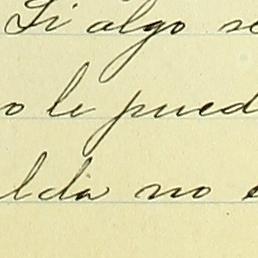 Si algo se
o le pued
lda no e